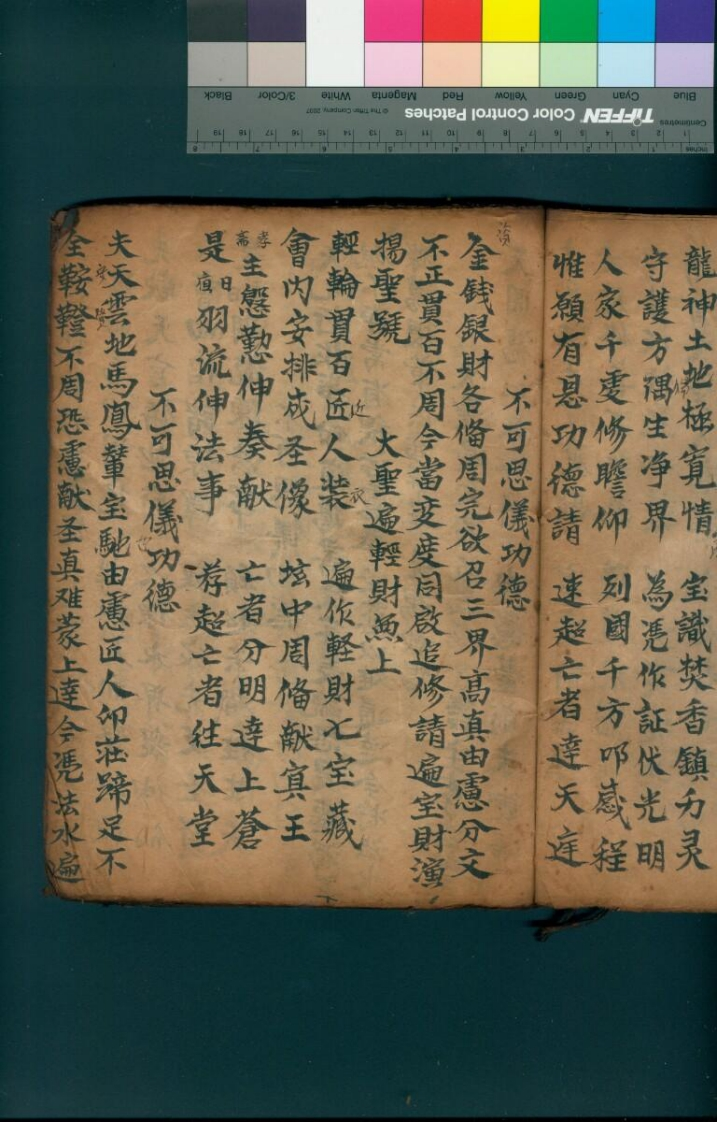 Blue Cyan Green Yellow Red Magenta White 3/Color Black
Centimetres TIFFEN Color Control Patches © The Tiffen Company, 2007
龍神土地極寬情 宝識焚香鎮方灵
守護方隅生净界 為憑作証伏光明
人家千處修瞻仰 列國千方叩感程
惟願有恩功德請 速超亡者達天庭
不可思儀功德
金錢銀財各俻周完欲召三界高真由慮分文
不正貫百不周今當变度同啟追修請遍宝財演
揚聖號 大聖遍輕財無上
輕輪貫百匠人装 遍作軽財七宝藏
會内安排成圣像 坛中周俻献冥王
孝齋主慇懃伸奏献 亡者分明達上蒼
是日宿羽流伸法事 荐超亡者往天堂
不可思儀功德
夫天雲地馬鳳輦宝馳由慮匠人仰莊蹄足不
全鞍鐙不周恐慮献圣真难蒙上達今憑法水遍